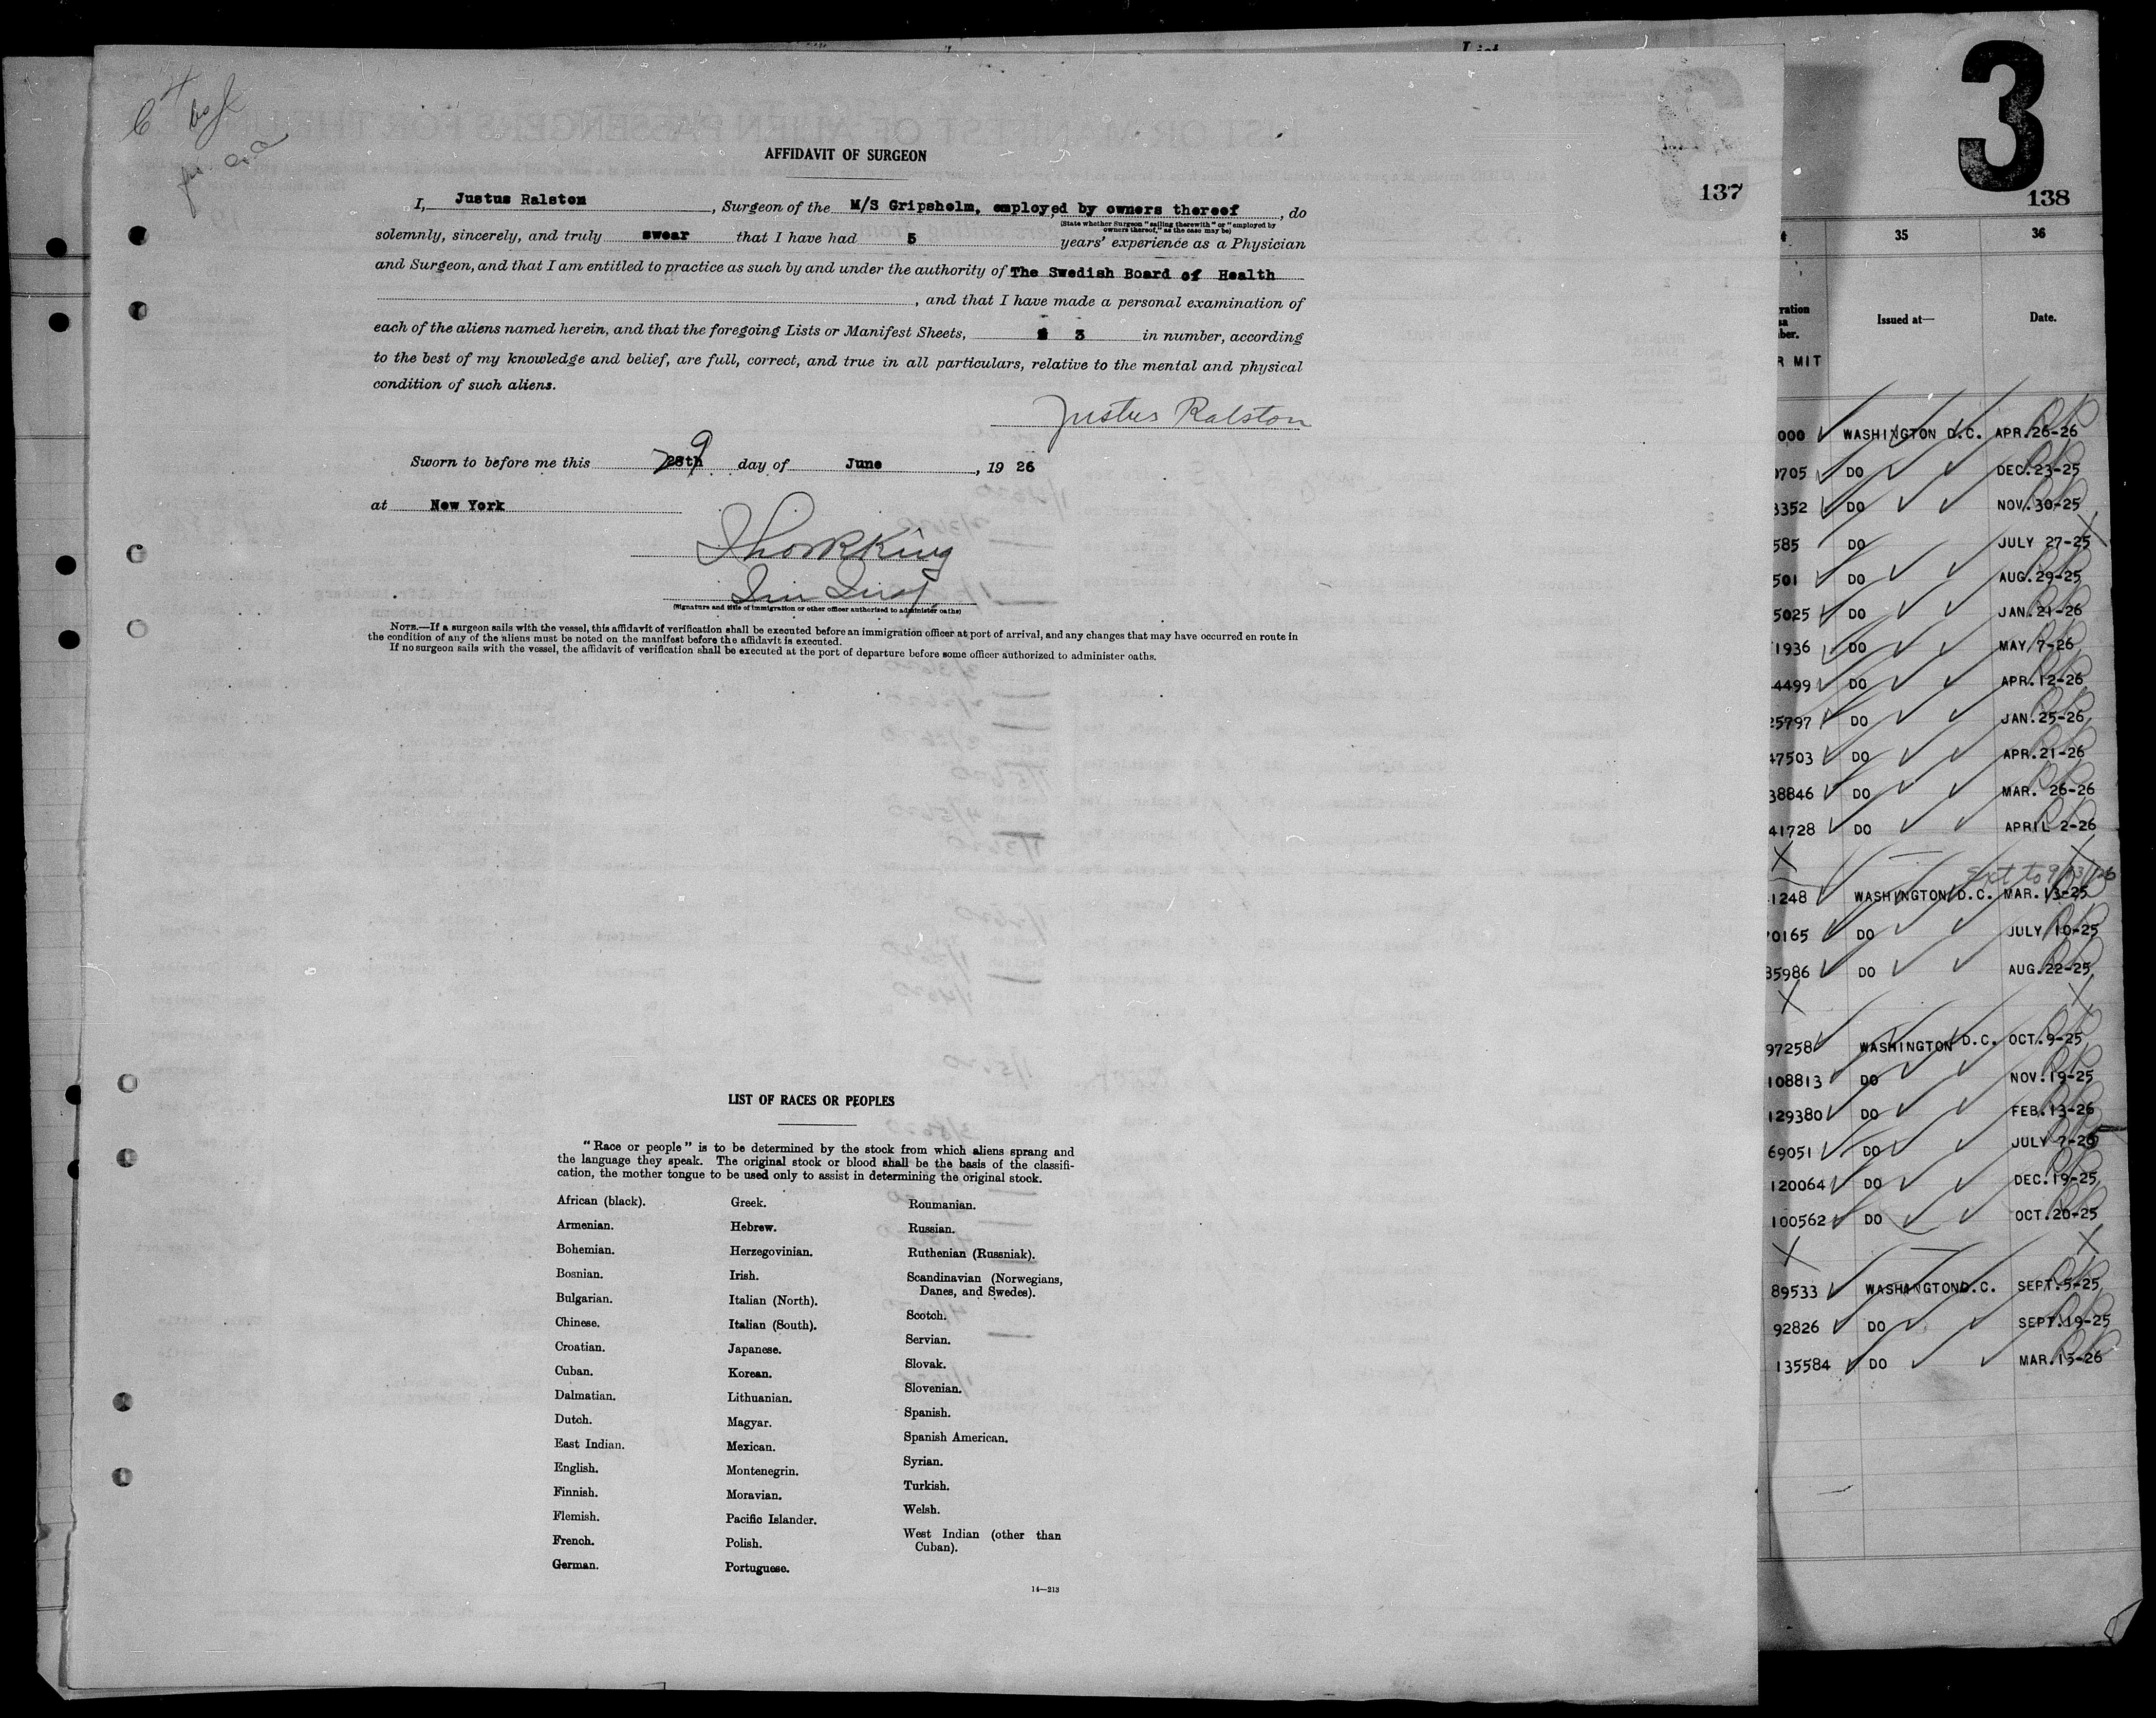 3
AFFIDAVIT OF SURGEON
137
138
I, Justus Ralston, Surgeon of the M/S Gripsholm, employed by owners thereof, do
(State whether Surgeon "sailing therewith" or "employed by
owners thereof," as the case may be)
solemnly, sincerely, and truly swear that I have had 5 years' experience as a Physician
and Surgeon, and that I am entitled to practice as such by and under the authority of The Swedish Board of Health
, and that I have made a personal examination of
each of the aliens named herein, and that the foregoing Lists or Manifest Sheets, 3 in number, according
to the best of my knowledge and belief, are full, correct, and true in all particulars, relative to the mental and physical
condition of such aliens.
Justus Ralston
Sworn to before me this 29 28th day of June, 19 26
at New York
(Signature and title of immigration or other officer authorized to administer oaths)
NOTE.—If a surgeon sails with the vessel, this affidavit of verification shall be executed before an immigration officer at port of arrival, and any changes that may have occurred en route in
the condition of any of the aliens must be noted on the manifest before the affidavit is executed.
If no surgeon sails with the vessel, the affidavit of verification shall be executed at the port of departure before some officer authorized to administer oaths.
LIST OF RACES OR PEOPLES
"Race or people" is to be determined by the stock from which aliens sprang and
the language they speak. The original stock or blood shall be the basis of the classifi-
cation, the mother tongue to be used only to assist in determining the original stock.
African (black).
Armenian.
Bohemian.
Bosnian.
Bulgarian.
Chinese.
Croatian.
Cuban.
Dalmatian.
Dutch.
East Indian.
English.
Finnish.
Flemish.
French.
German.
Greek.
Hebrew.
Herzegovinian.
Irish.
Italian (North).
Italian (South).
Japanese.
Korean.
Lithuanian.
Magyar.
Mexican.
Montenegrin.
Moravian.
Pacific Islander.
Polish.
Portuguese.
Roumanian.
Russian.
Ruthenian (Russniak).
Scandinavian (Norwegians,
Danes, and Swedes).
Scotch.
Servian.
Slovak.
Slovenian.
Spanish.
Spanish American.
Syrian.
Turkish.
Welsh.
West Indian (other than
Cuban).
14—213
35 36
Issued at— Date.
000 WASHINGTON D.C. APR.26-26
0705 DO DEC.23-25
3352 DO NOV.30-25
585 DO JULY 27-25
501 DO AUG.29-25
5025 DO JAN.21-26
1936 DO MAY 7-26
4499 DO APR.12-26
25797 DO JAN.25-26
47503 DO APR.21-26
38846 DO MAR. 26-26
41728 DO APRIL 2-26
Ext to 9/13/26
1248 WASHINGTON D.C. MAR.13-25
70165 DO JULY 10-25
85986 DO AUG.22-25
97258 WASHINGTON D.C. OCT.9-25
108813 DO NOV.19-25
129380 DO FEB.13-26
69051 DO JULY 7-26
120064 DO DEC.19-25
100562 DO OCT.20-25
89533 WASHINGTON D.C. SEPT.5-25
92826 DO SEPT.19-25
135584 DO MAR.15-26